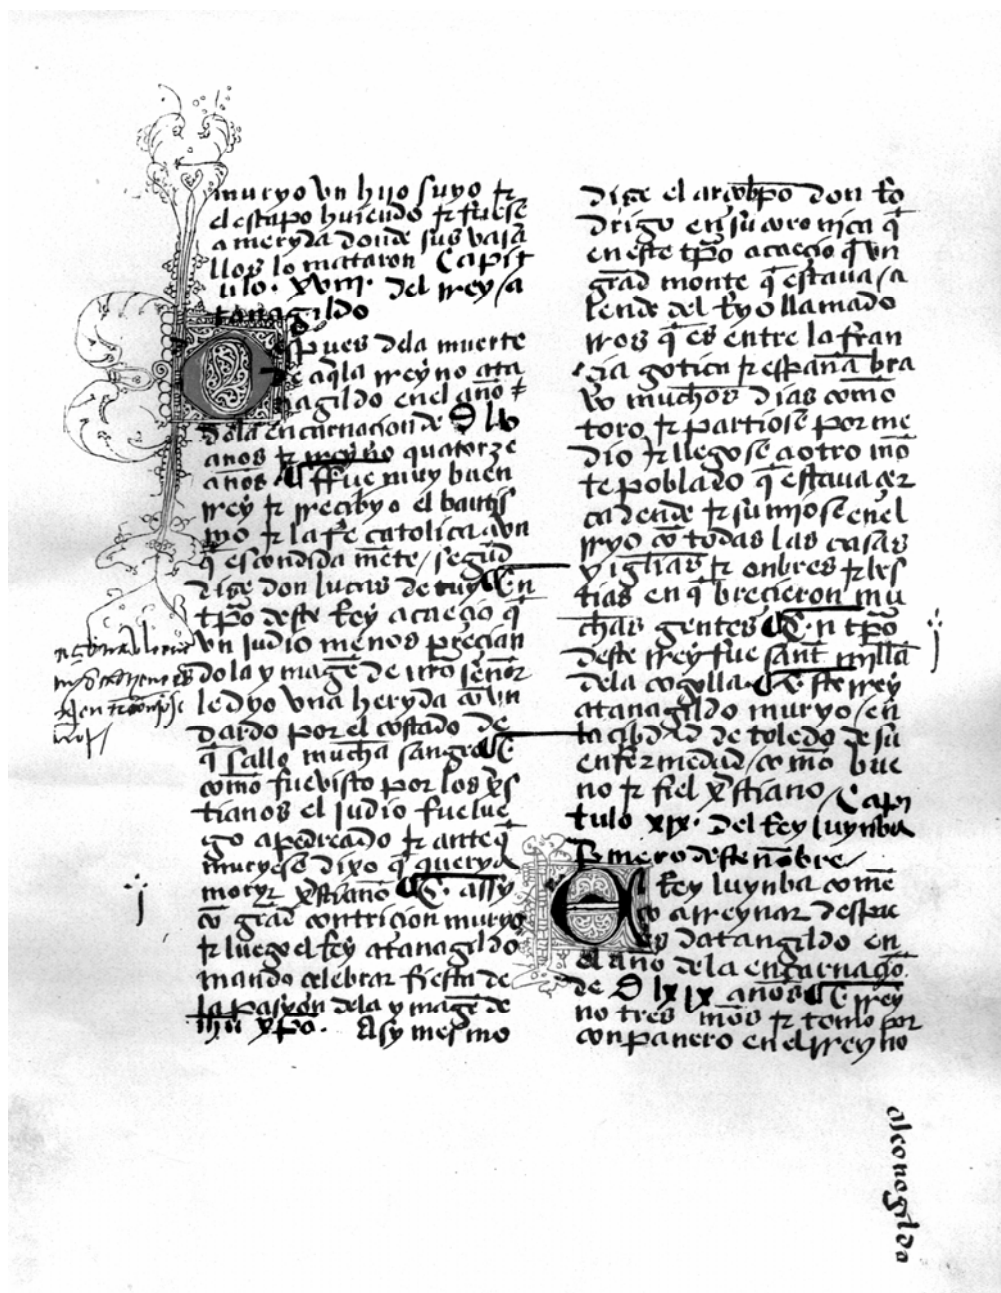 muryo vn hijo suyo ⁊
el escapo huiendo ⁊ fuese
a meryda donde sus vasa
llos lo mataron Capit
ulo. xviij. del rrey / a
tanagildo
Espues dela muerte
de aq̃la rreyno ata
nagildo enel año
dela encarnacion de D lvo
años ⁊ rreyño quatorze
años ffue muy buen
rrey ⁊ rrecibyo el bautis
mo ⁊ la fe catolica avn
q̃ escondida mẽte / segũd
dize don lucas de tuy En
tp̃o deste Rey acaeçio q̃
vn judio menos preçian
do la ymagẽ de nr̃o señor
le dyo vna heryda cõ vn
dardo por el costado de
q̃ salio mucha sangre E
como fue visto por los xp̃s
tianos el judio fue lue
go apedreado ⁊ ante q̃
muryese dixo q̃ querya
moryr xp̃stiano E assy
cõ grãd contriçion muryo
⁊ luego el Rey atanagildo
mando celebrar fiesta de
la pasyon dela ymagẽ de
ihu xp̃o. Asy mesmo
dize el arçob̃po don Ro
drigo en su coronica q̃
en este tp̃o acaeçio q̃ vn
grãd monte q̃ estaua / a
lende del Ryo llamado
rros q̃ es entre la fran
çia gotica ⁊ españa bra
mo muchos dias como
toro ⁊ partiose por me
dio ⁊ llegose a otro mõ
te poblado q̃ estaua çer
ca dende ⁊ sumiose enel
rryo cõ todas las casas
yiglias ⁊ onbres ⁊ bes
tias en q̃ ereçieron mu
chas gentes En tp̃o
deste rrey fue sant millã
dela cogolla Este rrey
atanagildo muryo / en
la çibdad de toledo de su
enfermedad / como bue
no ⁊ fiel xp̃stiano / Capi
tulo xix. del Rey luynba
Primero deste nõbre /
El Rey luynba comẽ
ço a rreynar despu
es datangildo en
el año dela encarnaçõ
de D lxix años E rrey
no tres años ⁊ tomo por
conpanero en el rreyno